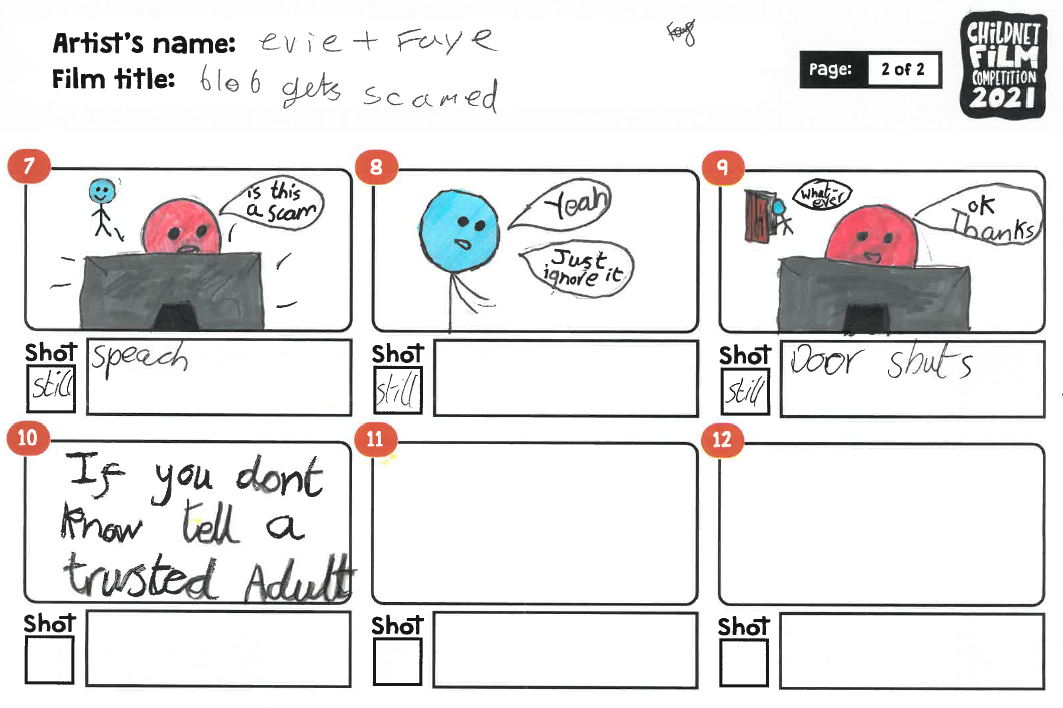 Artist's name: evie + Faye
Film title: blob gets scamed
Page: 2 of 2
CHILDNET
FILM
COMPETITION
2021
7
is this
a scam
Shot
still
Speach
8
Yeah
Just
ignore it
Shot
still
9
What-
ever
OK
Thanks
Shot
still
Door shuts
10
If you dont
know tell a
trusted Adult
Shot
11
Shot
12
Shot